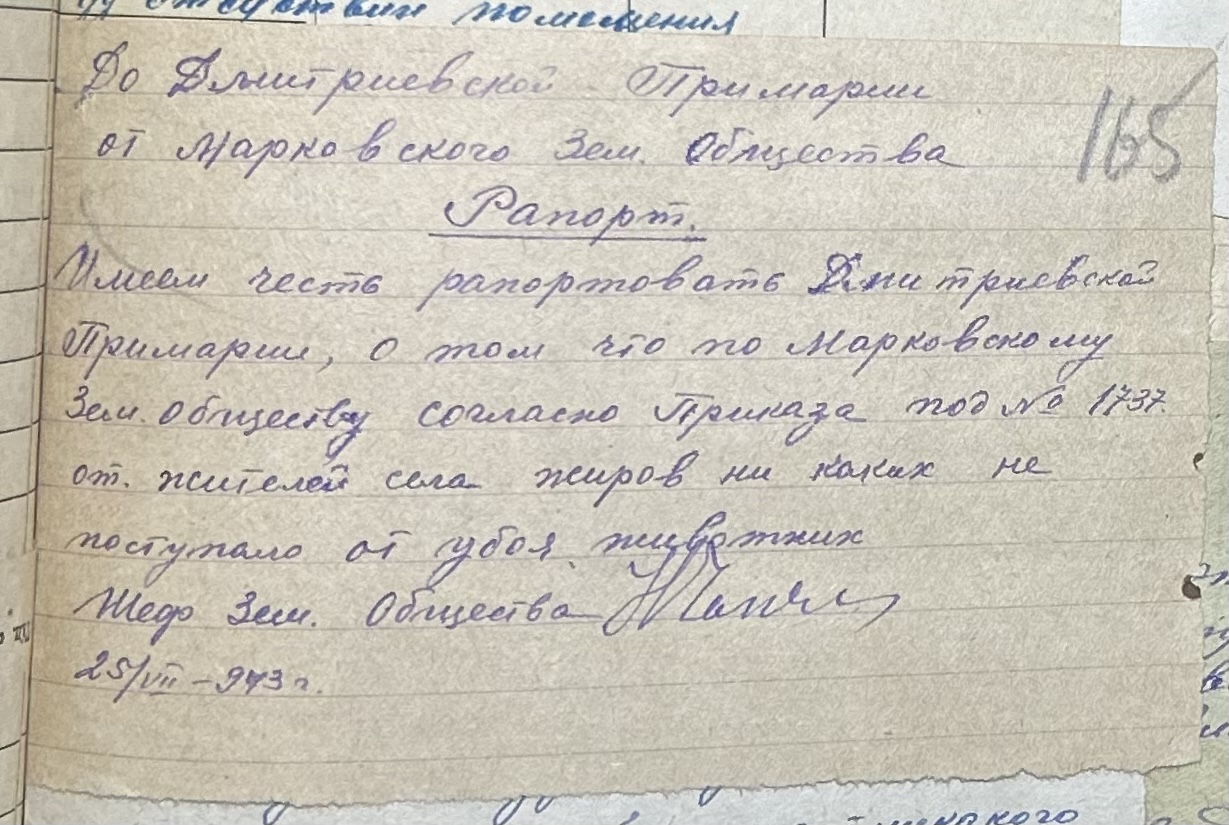 отсутствии помещения
До Дмитриевской Примарии
165
от Марковского Зем. Общества
Рапорт.
Имеем честь рапортовать Дмитриевской
Примарии, о том что по Марковскому
Зем. обществу согласно Приказа под № 1737.
от. жителей села жиров ни каких не
поступало от убоя животних
Шеф Зем. Общества
25/VII – 943 г.